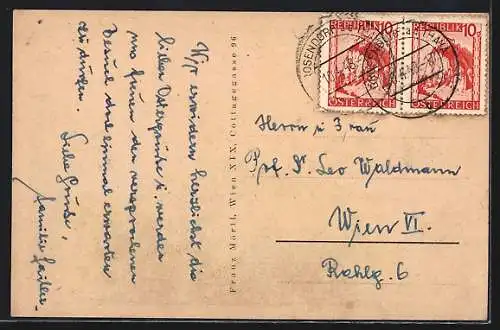 Wir erwidern herzlichst die
lieben Ostergrüße u. werden
uns freuen den versprochenen
Besuch doch einmal erwarten
zu dürfen.
Liebe Grüße,
Familie
Franz Mörtl, Wien XIX, Cottagegasse 96
REPUBLIK 10
ÖSTERREICH
REPUBLIK 10
ÖSTERREICH
Herrn u Frau
Prof. Dr. Leo Waldmann
Wien VI.
Rahlg. 6